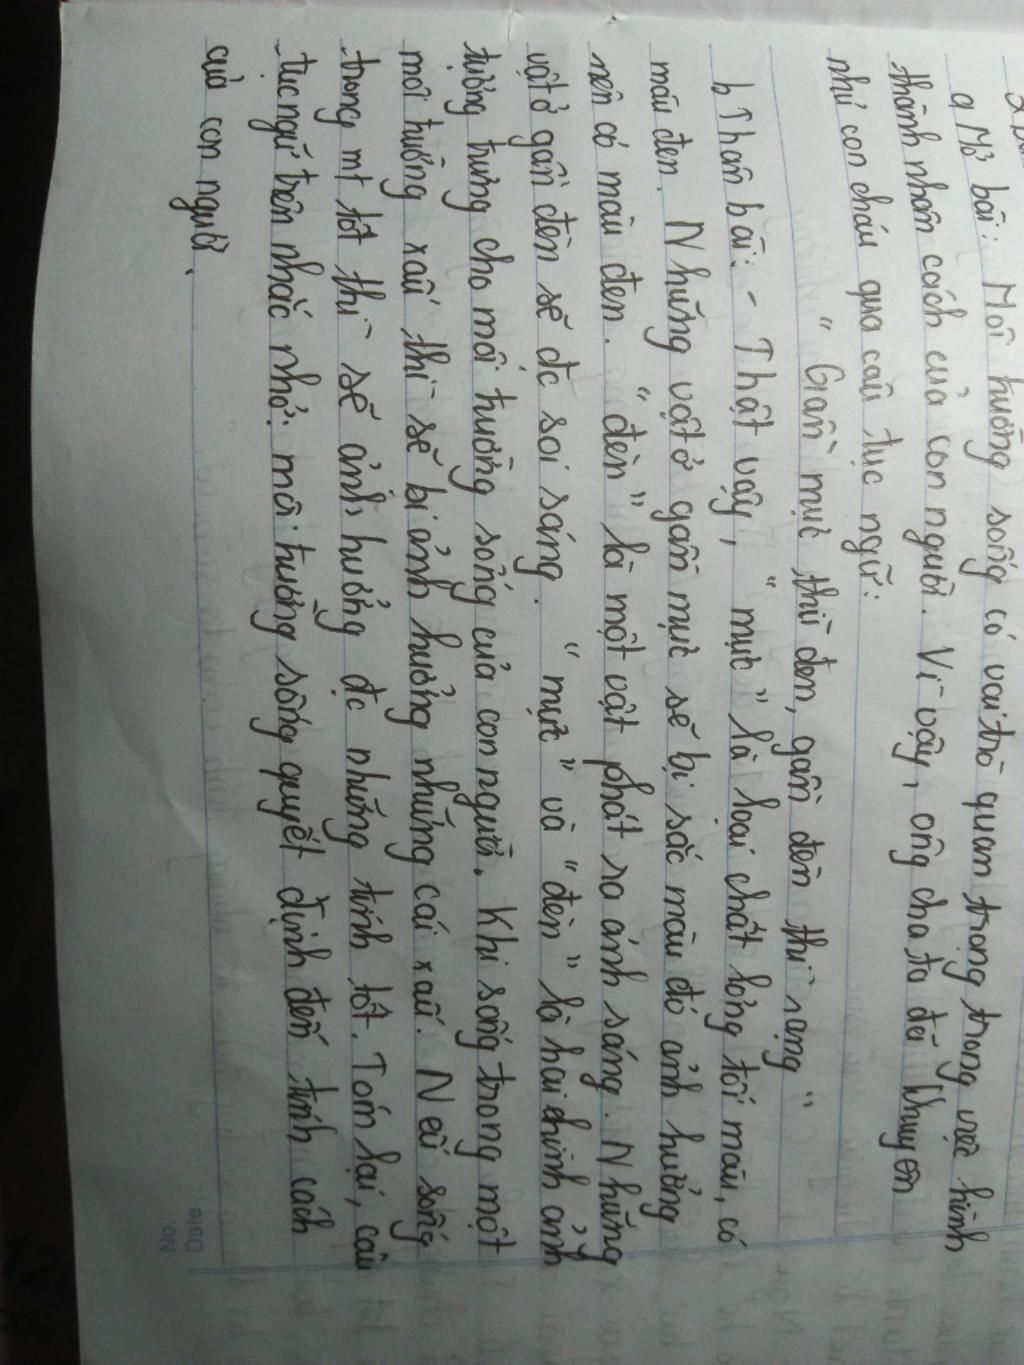 a Mở bài: Môi trường sống có vai trò quan trọng trong việc hình
thành nhân cách của con người. Vì vậy, ông cha ta đã khuyên
nhủ con cháu qua câu tục ngữ:
" Gần mực thì đen, gần đèn thì rạng "
b Thân bài: - Thật vậy, " mực " là loại chất lỏng tối màu, có
màu đen. Những vật ở gần mực sẽ bị sắc màu đó ảnh hưởng
nên có màu đen. " đèn " là một vật phát ra ánh sáng. Những
vật ở gần đèn sẽ đc soi sáng. " mực " và " đèn " là hai hình ảnh
tượng trưng cho môi trường sống của con người. Khi sống trong một
môi trường xấu thì sẽ bị ảnh hưởng những cái xấu. Nếu sống
trong mt tốt thì sẽ ảnh hưởng đc những tính tốt. Tóm lại, câu
tục ngữ trên nhắc nhở: môi trường sống quyết định đến tính cách
của con người.
No.
Date